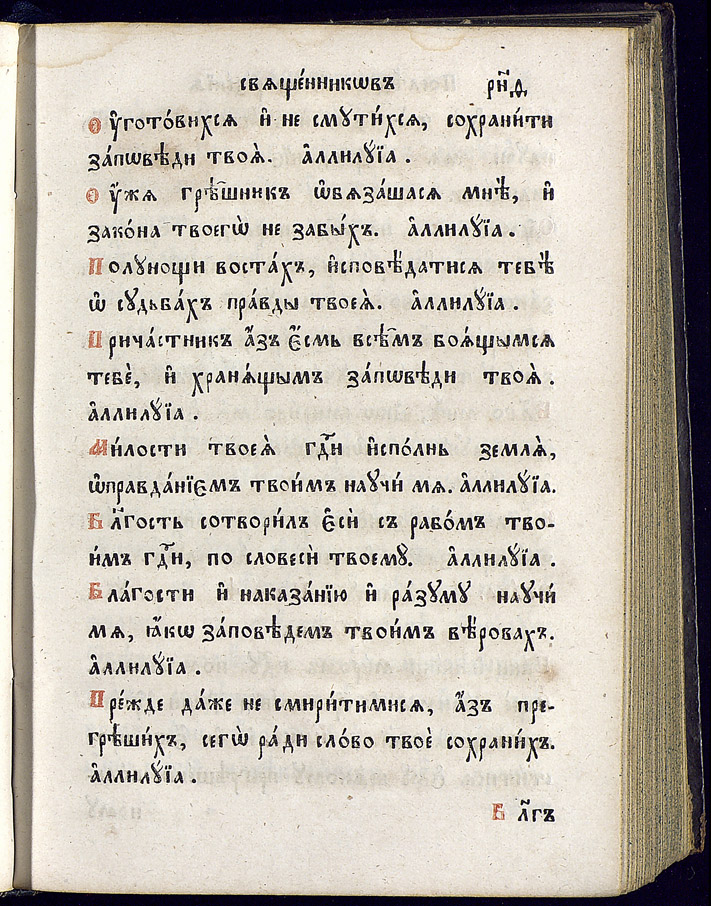 свѧще́нникѡвъ рн҃д
Ѹ҆гото́вихсѧ и҆ не смути́хсѧ, сохрани́ти
за́пѡвѣди твоѧ̀. а҆ллилꙋ́їа .
Ѹ҆́жѧ грѣ́шникъ ѡ҆бѧза́шасѧ мнѣ̀, и҆
зако́на твоегѡ̀ не забы́хъ. а҆ллилꙋ́їа .
Полꙋнощи воста́хъ, и҆сповѣ́датисѧ тебѣ̀
ѡ҆ сꙋдьба́хъ пра́вды твоеѧ̀. а҆ллилꙋ́їа .
Прича́стникъ а҆́зъ є҆́смь всѣ̑мъ боѧ́щымсѧ
тебѐ, и҆ хранѧ́щымъ за́пѡвѣди твоѧ̀ .
а҆ллилꙋ́їа .
Ми́лости твоеѧ̀ гдⷭ҇и и҆спо́лнь землѧ̀,
ѡ҆правда́нїємъ твои́мъ наꙋчи́ мѧ. а҆ллилꙋ́їа.
Бл҃гость сотвори́лъ є҆сѝ съ рабо́мъ тво-
и́мъ гдⷭ҇и, по словесѝ твоемꙋ̀. а҆ллилꙋ́їа .
Бла́гости и҆ наказа́нїю и҆ ра́зꙋмꙋ наꙋчи́
мѧ, ꙗ҆́кѡ за́повѣдемъ твои́мъ вѣ́ровахъ.
а҆ллилꙋ́їа .
Пре́жде да́же не смири́тимисѧ, а҆́зъ пре-
грѣши́хъ, сегѡ̀ ра́ди сло́во твоѐ сохрани́хъ.
а҆ллилꙋ́їа .
Бл҃гъ